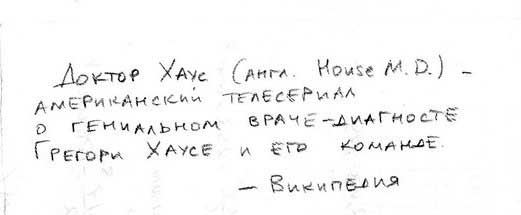 Доктор Хаус (англ. House M.D.) –
американский телесериал
о гениальном враче-диагносте
Грегори Хаусе и его команде.
– Википедия